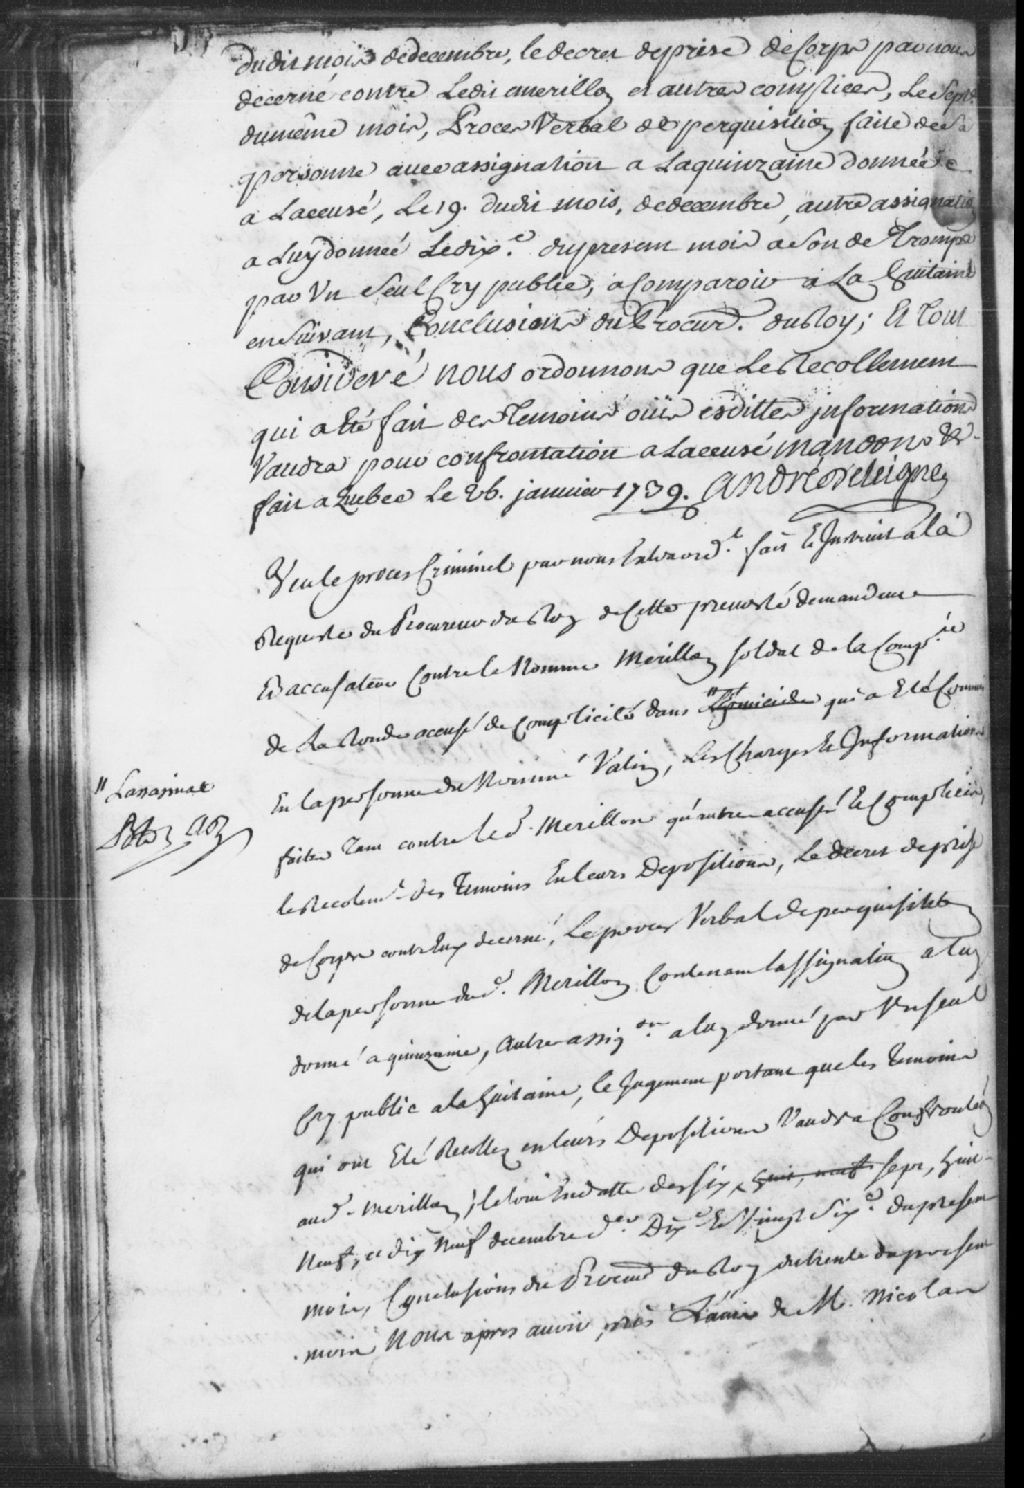 dudit mois de decembre, le decret de prise de Corps par nous
decerné contre Ledit merillon et autres complices, Le Sept
du même mois, Procer Verbal de perquisition faite de sa
personne avec assignation a Laquinzaine donnée
a Laccusé, Le 19. dudit mois, de decembre, autre assignation
a Luy donnée Le dix.e du present mois a Son de Trompe
par Un Seul Cry public, a Comparoir a La huitaine
en suivant, Conclusions du Procur.r du Roy; Et Tout
Consideré nous ordonnons que Le Recollement
qui a Eté fait des Temoins oüis esdittes jnformations
Vaudra pour confrontation a Laccusé mandons &
fait a Quebec Le 26. janvier 1739. André Deleigne
Veu le proces Criminel par nous Extraord.t fait Et Jnstruit a la
Requeste du Procureur du Roy de Cette prevosté demandeur
Et accusateur Contre le Nommé Merillon soldat de la Comp.nie
de La Ronde accusé de Complicité dans " L'homicide qui a Eté Commis
En la personne du Nommé Valin, Les Charges Et Jnformations
" Lassasinat
faites Tant contre le d. Merillon qu'autres accusés Et Complices,
le Recolem.t des Temoins En leurs Depositions, Le decret de prise
de Corps contr'Eux decerné, Le proces Verbal de perquisition
de la personne dud. Merillon Contenant lassignation a luy
donné a quinzaine, Autre assig.on a luy donné par Un seul
Cry public a la huitaine, le Jugement portant que les Temoins
qui ont Eté Recollez en leurs Depositions Vaudra Confrontés
aud. Merillon, le tout En datte des six, huit, neuf sept, huit
Neuf, et dix Neuf decembre d.er Dix Et Vingt Six.e du present
mois, Conclusions du Procur du Roy du trente du present
mois Nous apres avoir pris L'avis de M. Nicolas